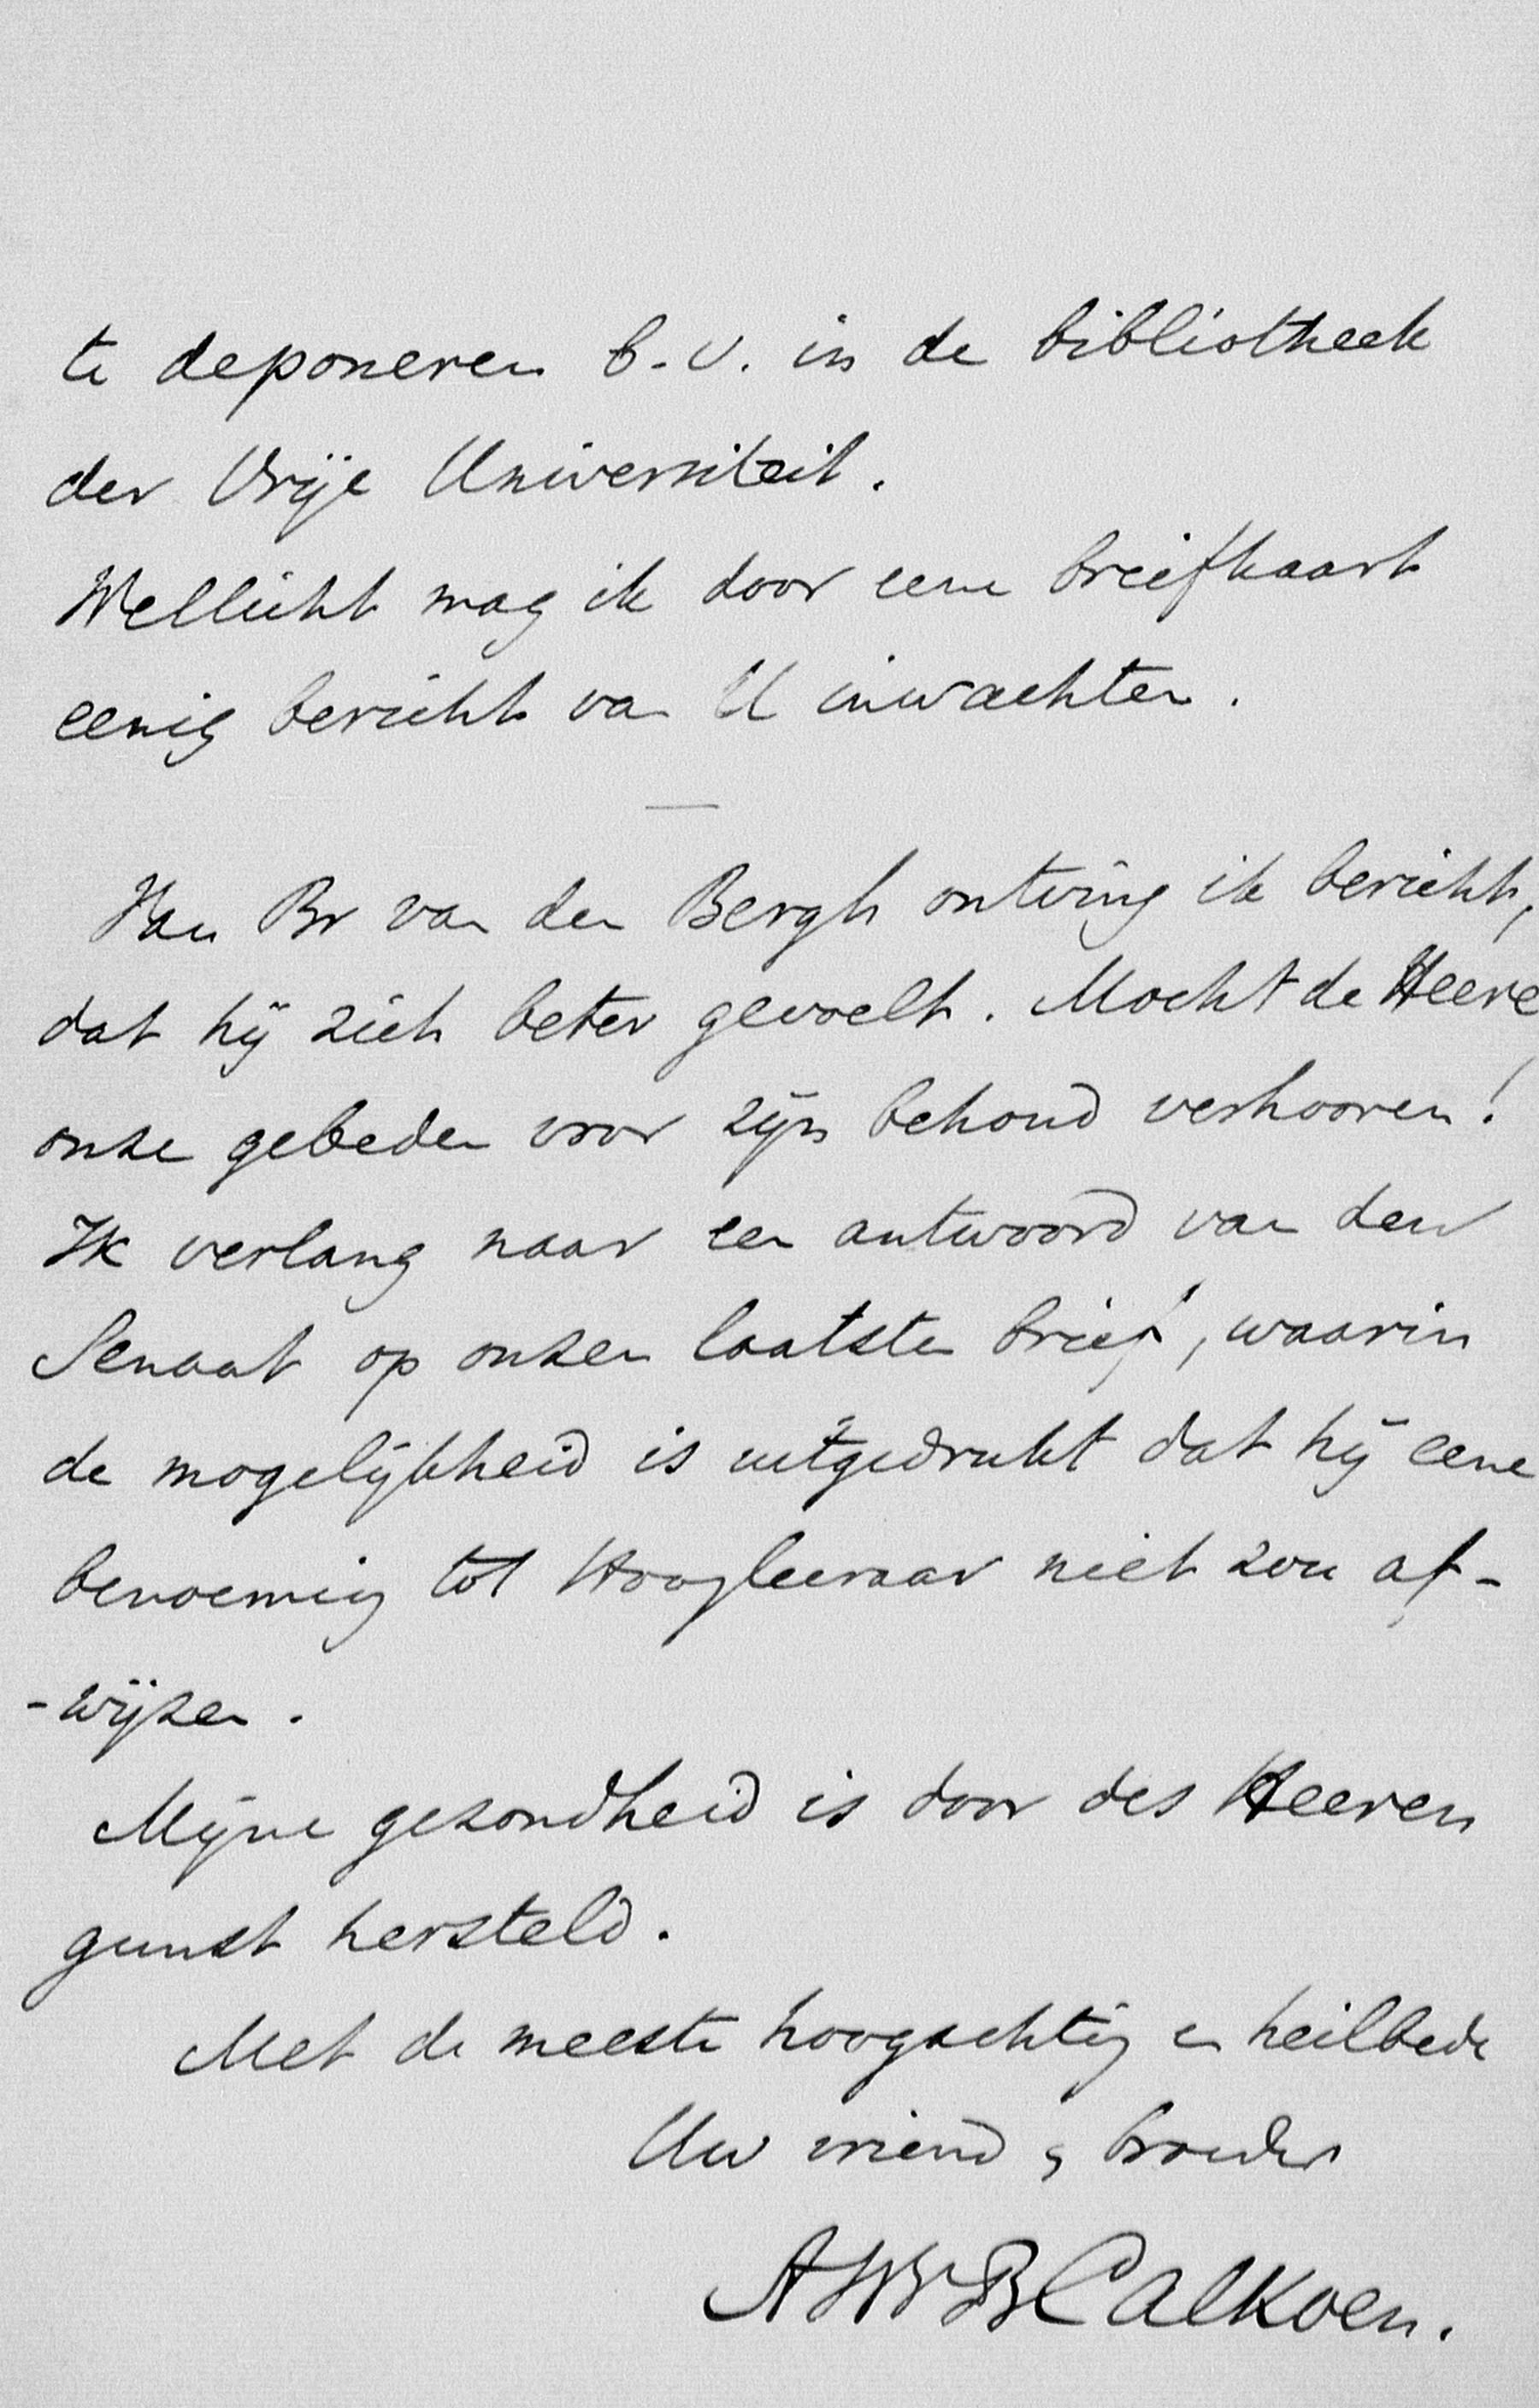 te deponeren b.v. in de bibliotheek
der Vrije Universiteit.
Wellicht mag ik door eene briefkaart
eenig bericht van U inwachten.
Van Br van den Bergh ontving ik bericht,
dat hij zich beter gevoelt. Mocht de Heere
onze gebeden voor zijn behoud verhooren!
Ik verlang naar een antwoord van den
Senaat op onzen laatsten brief, waarin
de mogelijkheid is uitgedrukt dat hij eene
benoeming tot Hoogleeraar niet zou af-
-wijzen.
Mijne gezondheid is door des Heeren
gunst hersteld.
Met de meeste hoogachting en heilbede
Uw vriend & broeder
AWvBCalkoen.